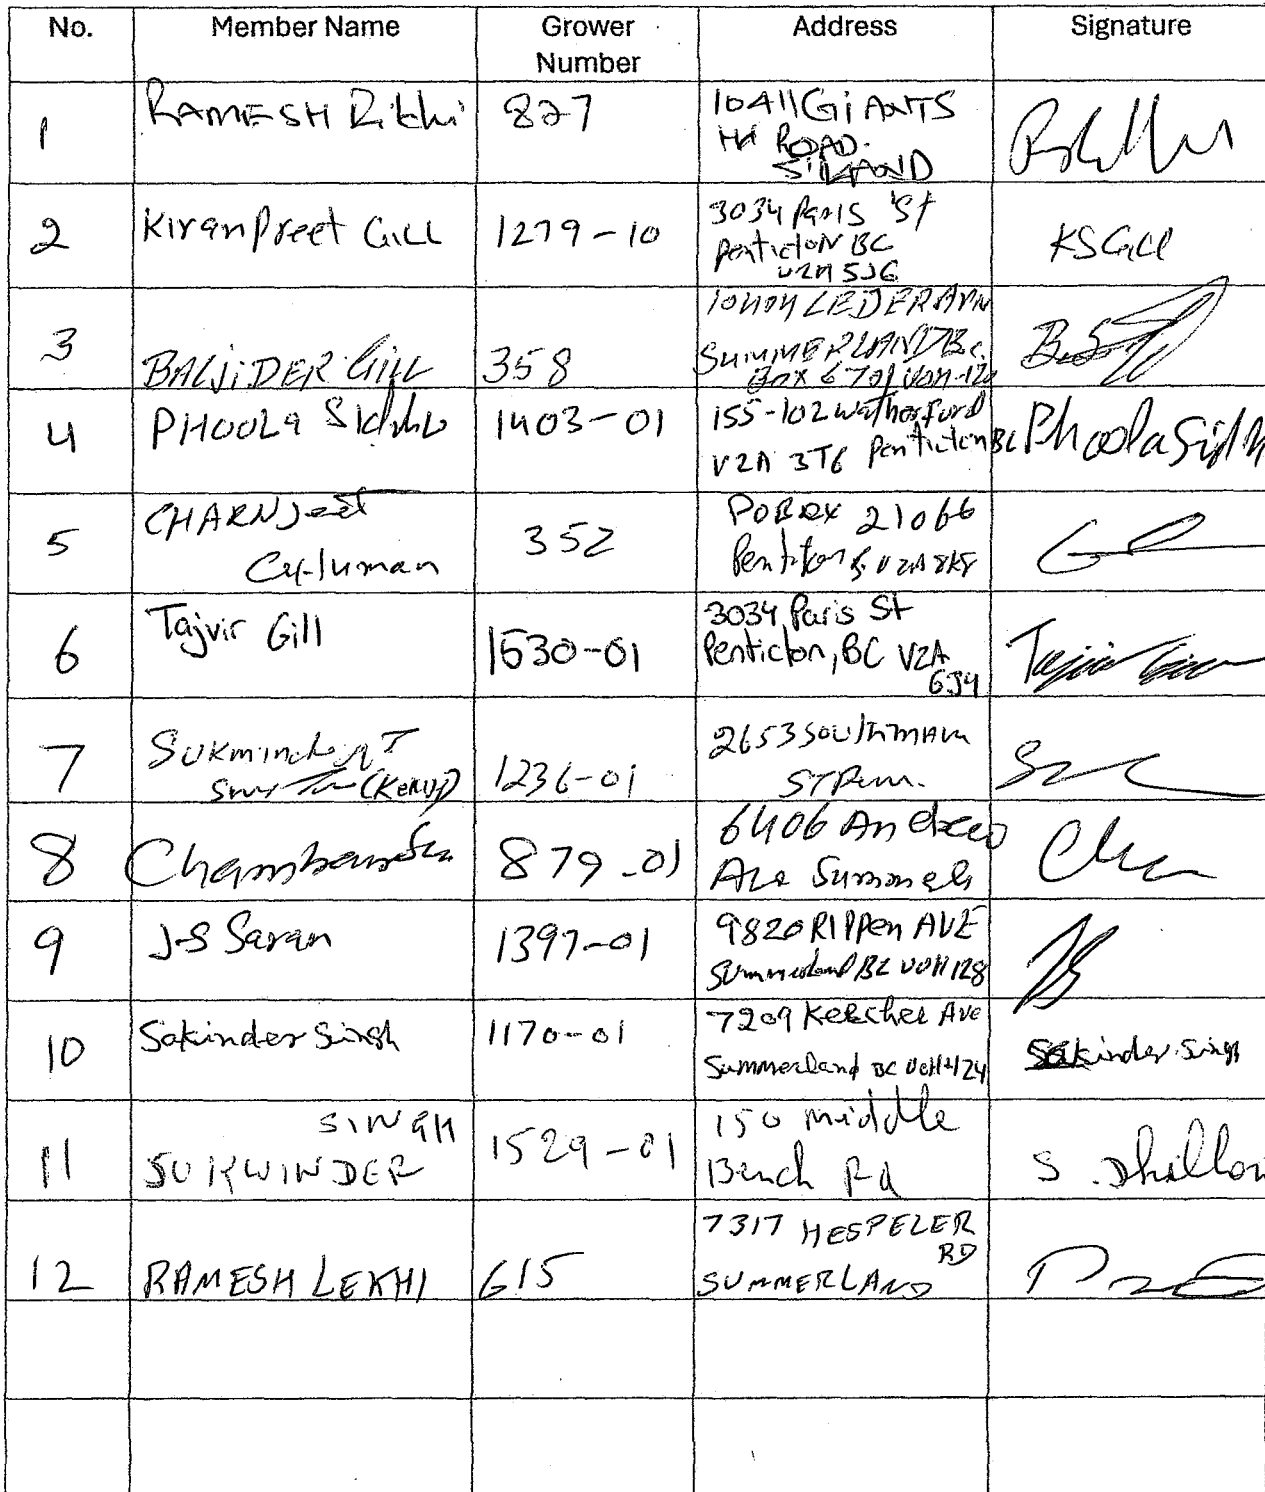 No. Member Name Grower Number Address Signature
1 RAMESH Rikhi 827 10411 GiANTS
Hd ROAD.
2 KiranPreet GILL 1279-10 3034 Paris St
Penticton BC
V2A 5J6
KSGill
3 BALJiDER GILL 358
SUMMERLAND B.C.
BOX 670
4 PHOOLa Sidhu 1403-01 155-102 Watherford
V2A 3T6 Penticton BC
Phoola Sidh
5 CHARNJeet 352 PO BOX 21066
Penticton V2A 8K8
6 Tajvir Gill 1530-01 3034 Paris St
Penticton, BC V2A
6J4
Tajvir Gill
7 1236-01 2653 SOUTH MAIN
ST Pen.
8 879-01 6406
Ave
9 J-S Saran 1397-01 9820 RIPPen AVE
Summerland BC V0H 1Z8
10 Sakinder Singh 1170-01 7209 Kelschee Ave
Summerland BC V0H 1Z4
Sakinder Singh
11 SINGH
SUKWINDER 1529-01 150 middle
Bench Rd
S. Dhillon
12 RAMESH LEKHI 615 7317 HESPELER
RD
SUMMERLAND